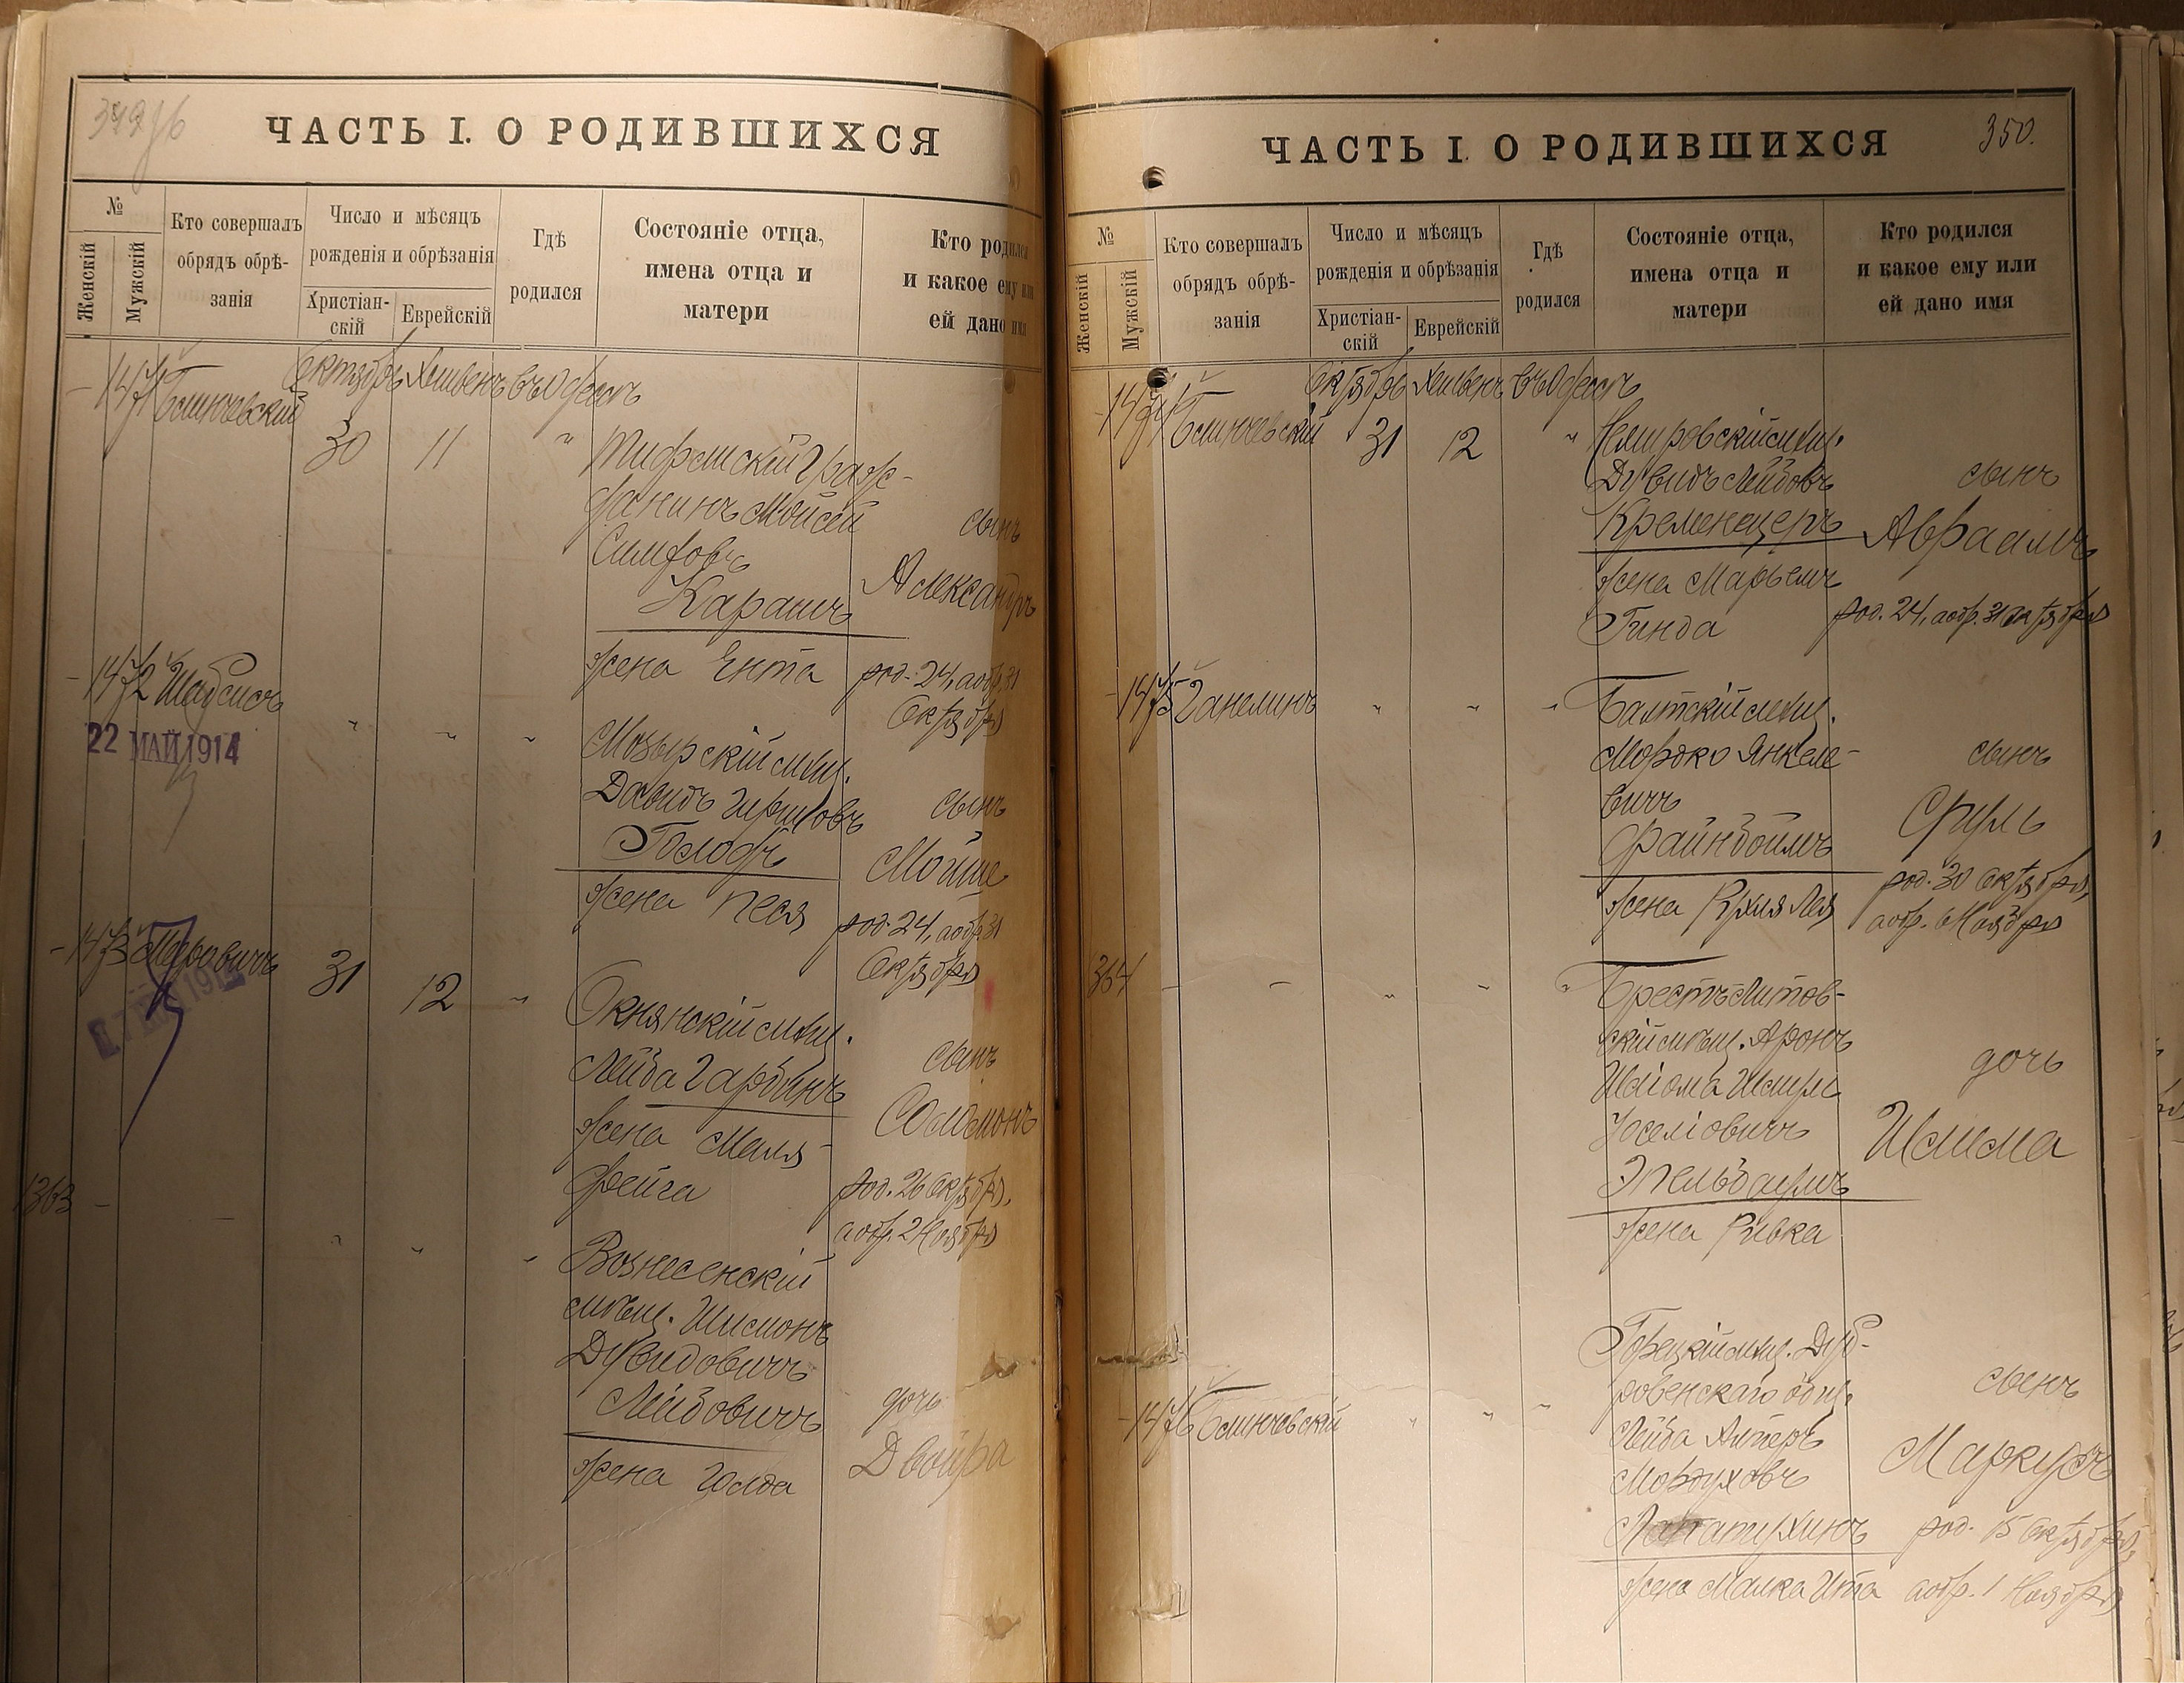 ЧАСТЬ I. О РОДИВШИХСЯ
№
Женскій
Мужскій
Кто совершалъ
обрядъ обрѣ-
занія
Число и мѣсяцъ
рожденія и обрѣзанія
Христіан-
скій
Еврейскій
Гдѣ
родился
Состояніе отца,
имена отца и
матери
Кто родился
и какое ему или
ей дано имя
Октябрь Хешвенъ въ Одессѣ
1471 Блинчевский
30 11 "
Тифлисскій граж-
данинъ Мойсей
Симховъ
Карасикъ
жена Ента
сынъ
Александръ
род. 24, а обр. 31
Октября
1472 Шабсисъ
22 МАЙ 1914
" " "
Мозырскій мѣщ.
Давидъ Гершковъ
Голодъ
жена Песя
сынъ
Мойше
род. 24, а обр. 31
Октября
1473
31 12 "
Окнянскій мѣщ.
Лейба Гарбинъ
жена Маля-
Фейга
сынъ
Соломонъ
род. 26 Октября,
а обр. 2 Ноября
1363 -
" " "
Вознесенскій
мѣщ. Шимонъ
Дувидовичъ
Лейбовичъ
жена Голда
дочь
Двойра
ЧАСТЬ I. О РОДИВШИХСЯ
350.
№
Женскій
Мужскій
Кто совершалъ
обрядъ обрѣ-
занія
Число и мѣсяцъ
рожденія и обрѣзанія
Христіан-
скій
Еврейскій
Гдѣ
родился
Состояніе отца,
имена отца и
матери
Кто родился
и какое ему или
ей дано имя
Октябрь Хешвенъ въ Одессѣ
1474 Блинчевскій
31 12 "
Немировскій мѣщ.
Дувидъ Лейбовъ
Кременецеръ
жена Марьемъ
Гинда
сынъ
Авраамъ
род. 24, а обр. 31 октября
1475 Ганелинъ
" " "
Балтскій мѣщ.
Мордко Янкеле-
вичъ
Файнбоймъ
жена Рухля Лея
сынъ
Сруль
род. 30 Октября,
а обр. 6 Ноября
364 - -
" " "
Брестъ-Литов-
скій мѣщ. Аронъ
Шлiома Шмуль
Іоселіовичъ
Эпельбаумъ
жена Ривка
дочь
Шлима
1476 Блинчевскій
" " "
Горецкій мѣщ. Дуб-
ровенскаго общ.
Лейба Алтеръ
Мордуховъ
жена Малка Ита
сынъ
Маркусъ
род. 15 Октября,
а обр. 1 Ноября